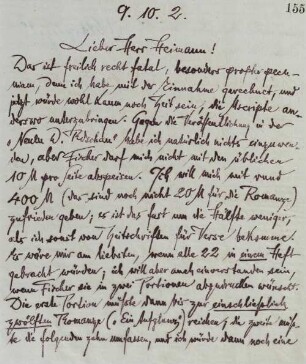 155
9. 10. 2.
Lieber Herr Heimann!
Das ist freilich recht fatal, besonders
denn ich habe mit der Einnahme gerechnet, und
jetzt würde wohl kaum noch Zeit sein, die Mscripte an-
derswo unterzubringen. Gegen die Veröffentlichung in der
"Neuen D. Rdschau" habe ich natürlich nichts einzuwen-
den, aber Fischer darf mich nicht mit den üblichen
10 M pro Seite abspeisen. Ich will mich mit rund
400 M (das sind noch nicht 20 M für die Romanze)
zufrieden geben; es ist das fast um die Hälfte weniger,
als ich sonst von Zeitschriften für Verse bekomme.
Es wäre mir am liebsten, wenn alle 22 in einem Heft
gebracht würden; ich will aber auch einverstanden sein,
wenn Fischer sie in zwei Portionen abzudrucken wünscht.
Die erste Portion müßte dann bis zur einschließlich
zwölften Romanze ( reichen; die zweite müß-
te die folgenden zehn umfassen, und ich würde dann noch eine